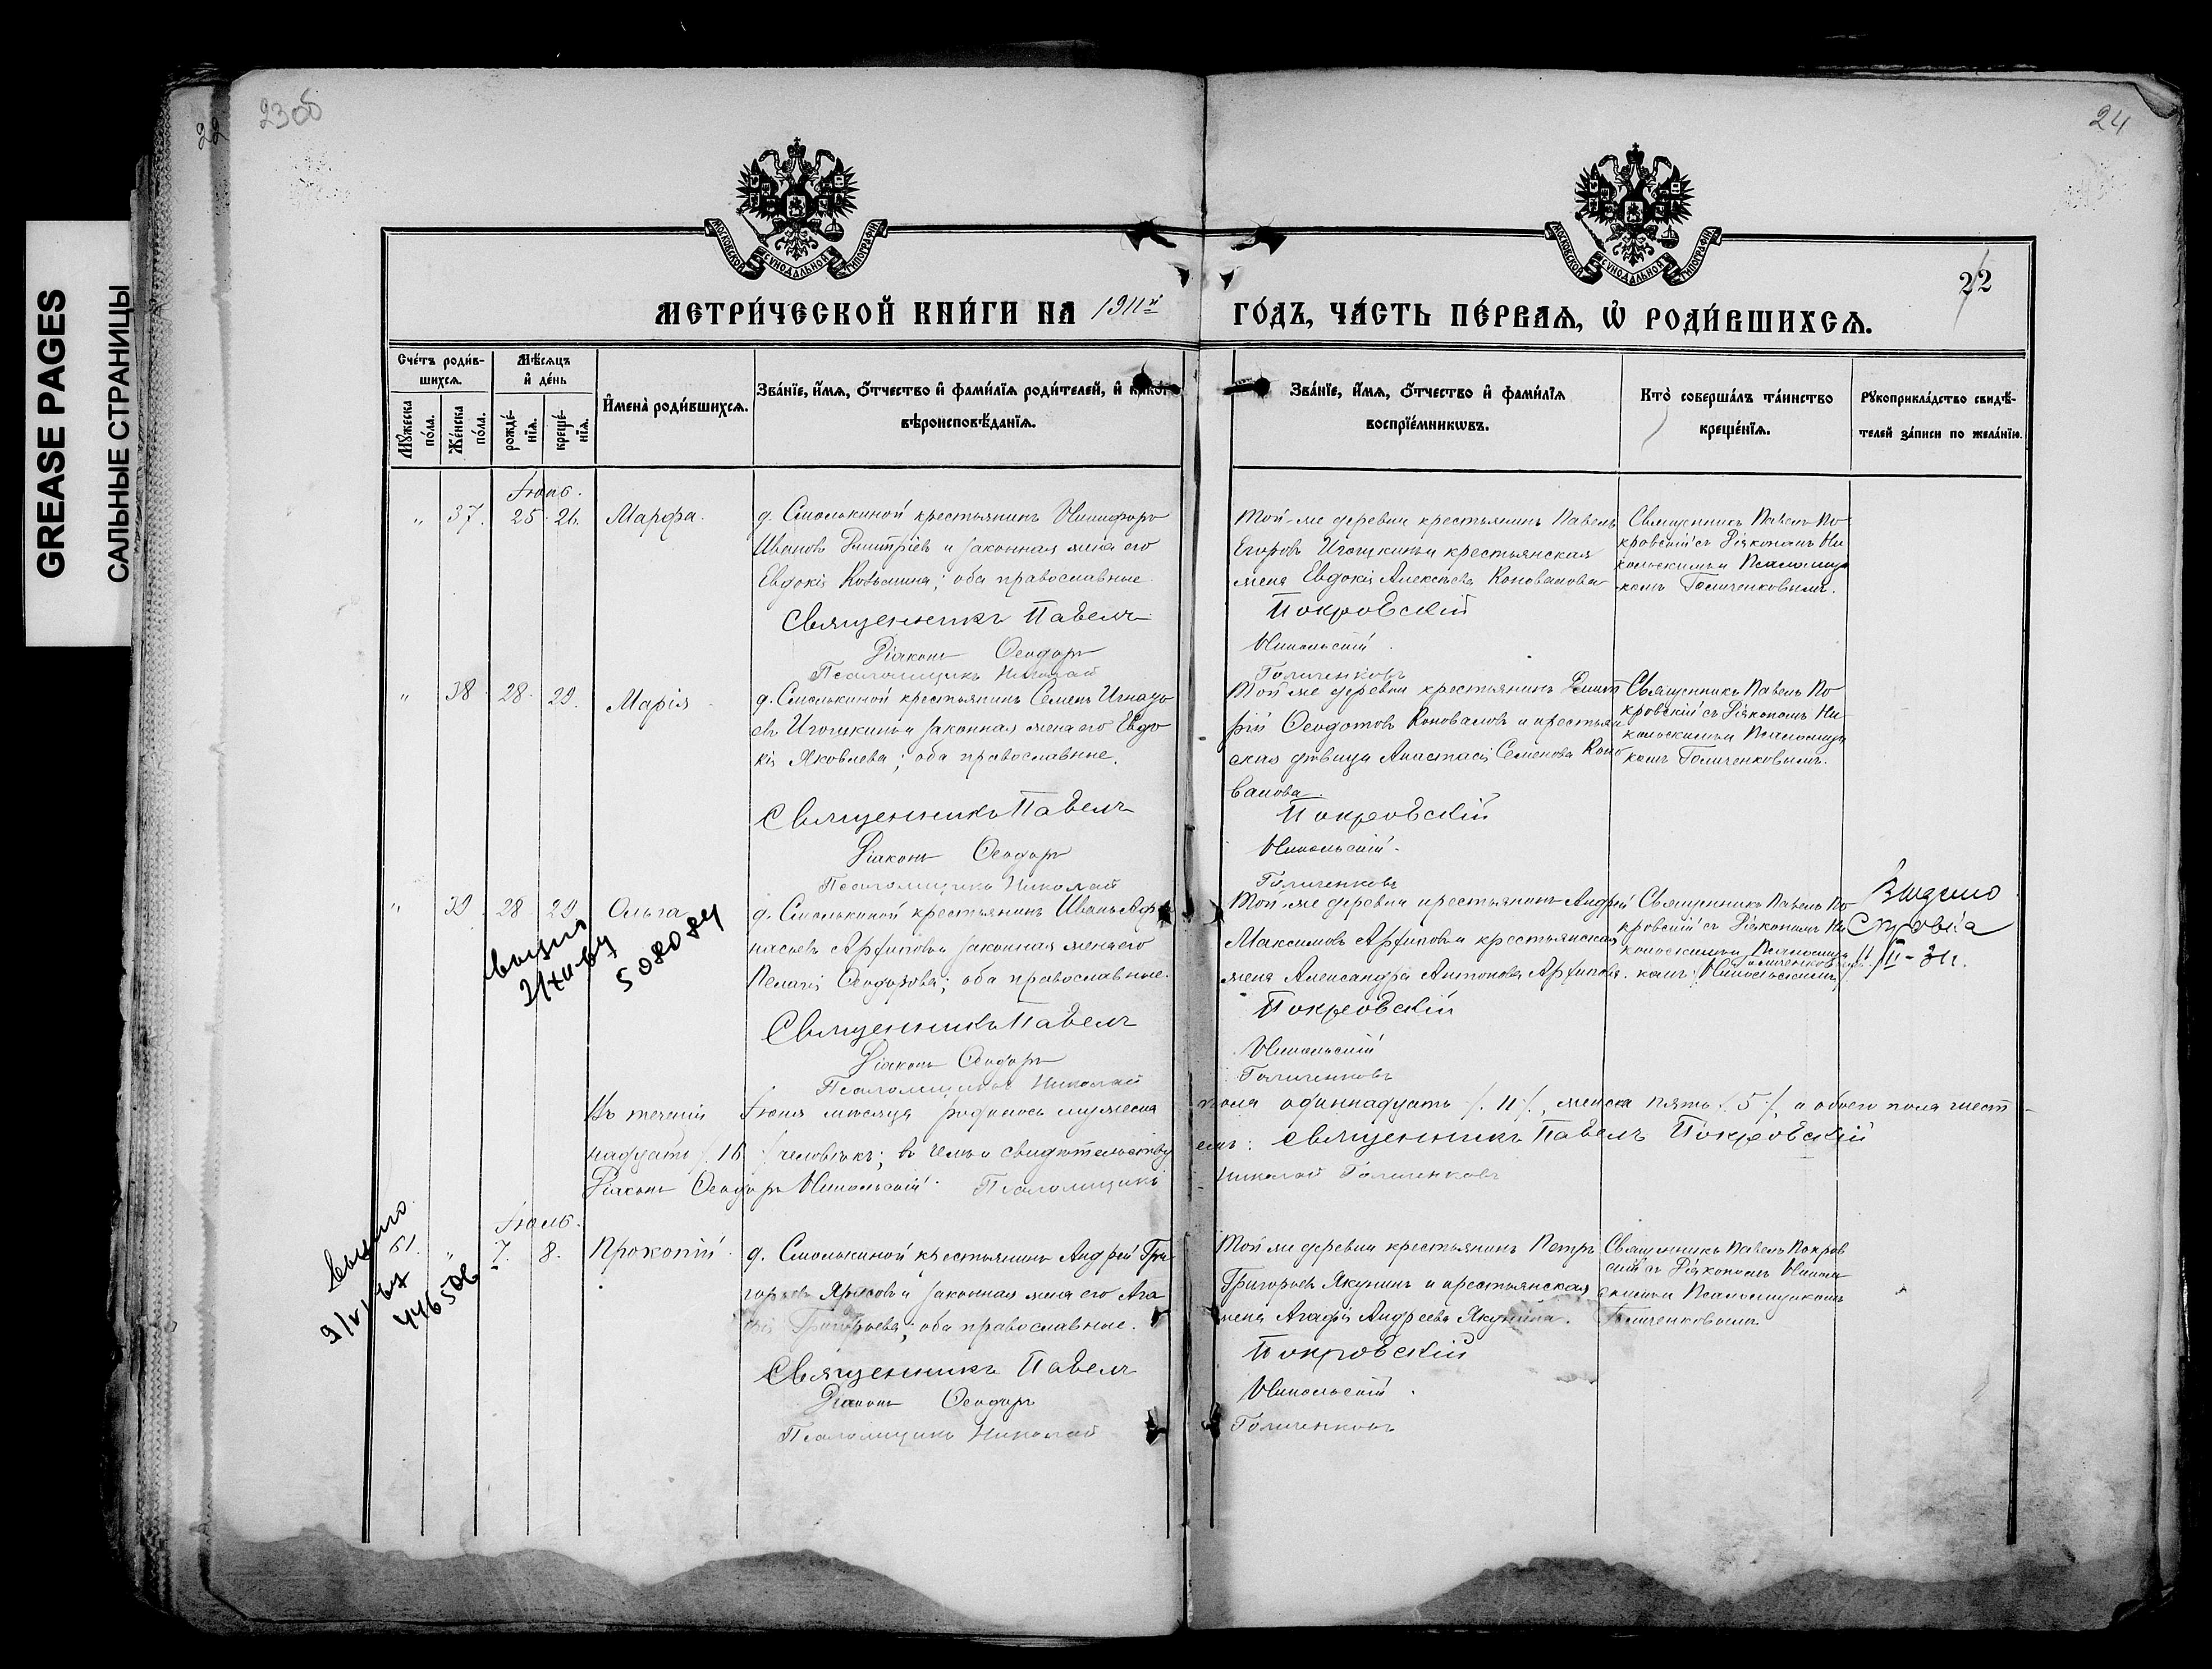 GREASE PAGES
САЛЬНЫЕ СТРАНИЦЫ
22
23об
24
МОСКОВСКОЙ СѴНОДАЛЬНОЙ ТИПОГРАФІИ
МОСКОВСКОЙ СѴНОДАЛЬНОЙ ТИПОГРАФІИ
22
МЕТРИ́ЧЕСКОЙ КНИ́ГИ НА 1911й ГО́ДЪ, ЧА́СТЬ ПЕ́РВАѦ, Ѽ РОДИ́ВШИХСѦ.
Сче́тъ роди́в-
шихсѧ.
Мꙋ́жеска по́ла.
Же́нска по́ла.
Мѣ́сѧцъ
и҆ де́нь
рожде́-
нїѧ.
креще́-
нїѧ.
И҆мена̀ роди́вшихсѧ.
Зва́нїе, и҆́мѧ, ѻ҆́тчество и҆ фами́лїѧ роди́телей, и҆ како́гѡ
вѣроисповѣ́данїѧ.
Зва́нїе, и҆́мѧ, ѻ҆́тчество и҆ фами́лїѧ
воспрїе́мникѡвъ.
Кто̀ соверша́лъ та́инство
креще́нїѧ.
Рꙋкоприкла́дство свидѣ́-
телей за́писи по жела́нїю.
Іюнь.
" 37. 25. 26. Марфа.
д. Смолькиной крестьянинъ Никифоръ
Ивановъ Дмитріевъ и законная жена его
Евдокія Козьмина; оба православные.
Священникъ Павелъ
Діаконъ Ѳеодоръ
Псаломщикъ Николай
Той-же деревни крестьянинъ Павелъ
Егоровъ Игошкинъ и крестьянская
жена Евдокія Алексѣева Коновалова
Покровскій
Никольскій
Голиченковъ
Священникъ Павелъ По-
кровскій съ Діакономъ Ни-
кольскимъ и Псаломщи-
комъ Голиченковымъ.
" 38. 28. 29. Марія
д. Смолькиной крестьянинъ Семенъ Игнать-
евъ Игошкинъ и законная жена его Евдо-
кія Яковлева; оба православные.
Священникъ Павелъ
Діаконъ Ѳеодоръ
Псаломщикъ Николай
Той же деревни крестьянинъ Димит-
рій Ѳеодотовъ Коноваловъ и крестьян-
ская дѣвица Анастасія Семенова Коно-
валова.
Покровскій
Никольскій
Голиченковъ
Священникъ Павелъ По-
кровскій съ Діакономъ Ни-
кольскимъ и Псаломщи-
комъ Голиченковымъ.
" 39. 28 29. Ольга
д. Смолькиной крестьянинъ Иванъ Аѳа-
насьевъ Арфиповъ и законная жена его
Пелагія Ѳеодорова; оба православные.
Священникъ Павелъ
Діаконъ Ѳеодоръ
Псаломщикъ Николай
Той же деревни крестьянинъ Андрей
Максимовъ Арфиповъ и крестьянская
жена Александра Антонова Арфипова.
Покровскій
Никольскій
Голиченковъ
Священникъ Павелъ По-
кровскій съ Діакономъ Ни-
кольскимъ и Псаломщи-
комъ
508084
Въ теченіи Іюня мѣсяца родилось мужеска пола одиннадцать /.11/., женска пять /.5/., а обоего пола шест-
надцать /.16/. человѣкъ; въ чемъ и свидѣтельствуемъ: Священникъ Павелъ Покровскій
Діаконъ Ѳеодоръ Никольскій. Псаломщикъ Николай Голиченковъ
Іюль.
51. " 7. 8. Прокопій
д. Смолькиной крестьянинъ Андрей Гри-
горьевъ и законная жена его Ага-
фія Григорьева; оба православные.
Священникъ Павелъ
Діаконъ Ѳеодоръ
Псаломщикъ Николай
Той же деревни крестьянинъ Петръ
Григорьевъ Якунинъ и крестьянская
жена Агафія Андреева Якунина.
Покровскій
Никольскій
Голиченковъ
Священникъ Павелъ Покров-
скій съ Діакономъ Николь-
скимъ и Псаломщикомъ
Голиченковымъ
446506